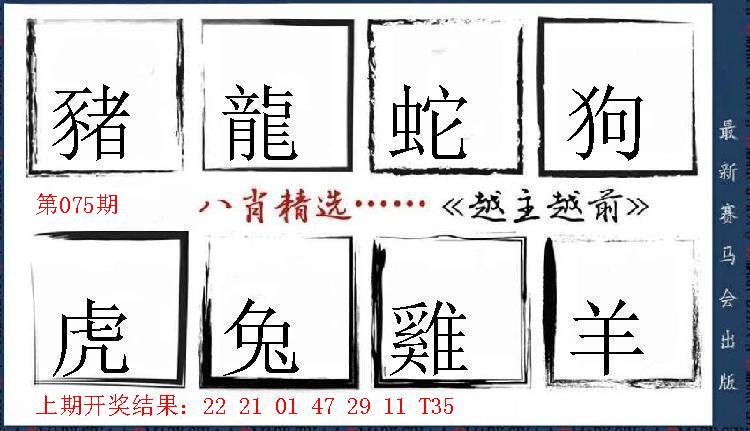 豬 龍 蛇 狗
第075期 八肖精选…… 《越主越前》
虎 兔 雞 羊
上期开奖结果：22 21 01 47 29 11 T35
最新赛马会出版